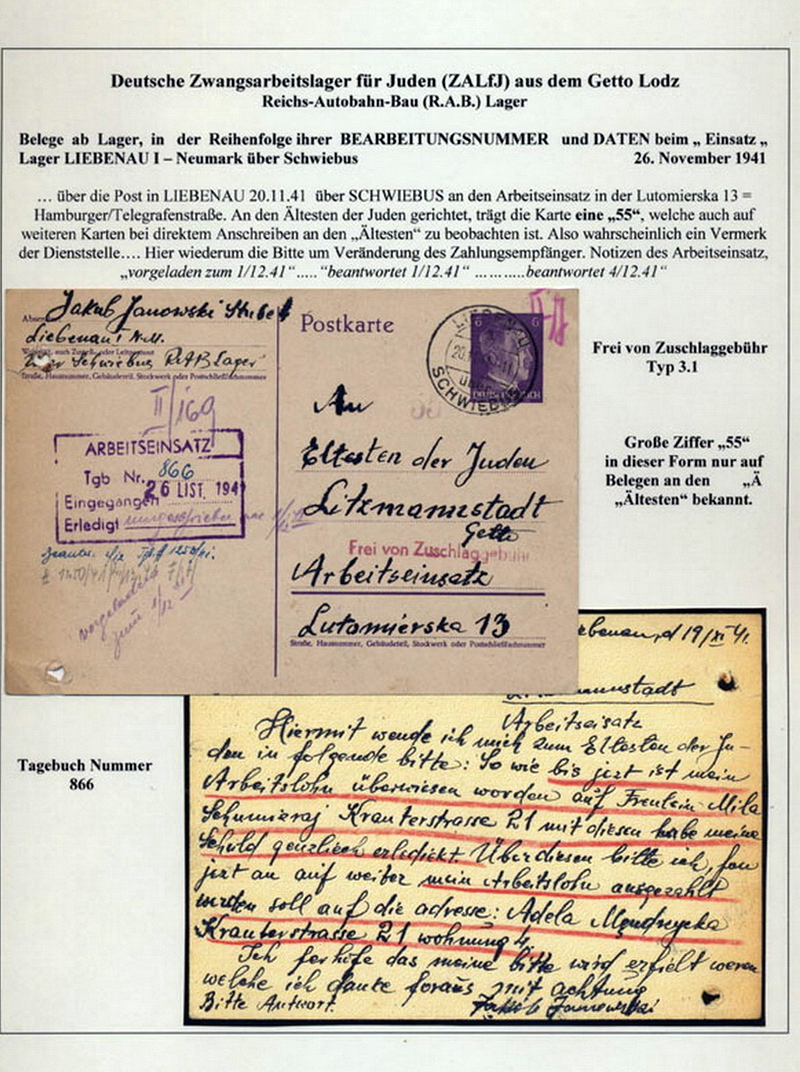 Deutsche Zwangsarbeitslager für Juden (ZALfJ) aus dem Getto Lodz
Reichs-Autobahn-Bau (R.A.B.) Lager
Belege ab Lager, in der Reihenfolge ihrer BEARBEITUNGSNUMMER und DATEN beim „ Einsatz „
Lager LIEBENAU I – Neumark über Schwiebus 26. November 1941
… über die Post in LIEBENAU 20.11.41 über SCHWIEBUS an den Arbeitseinsatz in der Lutomierska 13 =
Hamburger/Telegrafenstraße. An den Ältesten der Juden gerichtet, trägt die Karte eine „55“, welche auch auf
weiteren Karten bei direktem Anschreiben an den „Ältesten“ zu beobachten ist. Also wahrscheinlich ein Vermerk
der Dienststelle…. Hier wiederum die Bitte um Veränderung des Zahlungsempfänger. Notizen des Arbeitseinsatz,
„vorgeladen zum 1/12.41“…..“beantwortet 1/12.41“ ………..beantwortet 4/12.41“
Jakub Janowski Stube
Liebenau N-M.
Schwiebus RAB Lager
Straße, Hausnummer, Gebäudeteil, Stockwerk oder Postschließfachnummer
II/169
ARBEITSEINSATZ
Tgb Nr. 866
Eingegangen 26 LIST. 1941
Erledigt
vorgeladen
zum 1/12
Postkarte
6 6
LIEBENAU
über
SCHWIEBUS
An
Eltesten der Juden
Litzmannstadt
Getto
Frei von Zuschlaggebühr
Arbeitseinsatz
Lutomierska 13
Straße, Hausnummer, Gebäudeteil, Stockwerk oder Postschließfachnummer
Frei von Zuschlaggebühr
Typ 3.1
Große Ziffer „55“
in dieser Form nur auf
Belegen an den „Ä
„Ältesten“ bekannt.
Tagebuch Nummer
866
ebenau, d 19/XI 41.
mannstadt
Arbeitseisatz
Hiermit wende ich mich zum Eltesten der Ju-
den in folgende bitte: So wie bis jezt ist mein
Arbeitslohn überwiesen worden auf Freulein Mila
Schmieraj Krauterstrasse 21 mit diesen habe meine
Schuld genzliech erledikt. Überdiesen bitte ich, fon
jezt an auf weiter mein Arbeitslohn ausgezahlt
werden soll auf die adresse: Adela
Krauterstrasse 21 wohnung 4.
Ich ferhofe das meine bitte wird erfielt weren
welche ich danke foraus mit achtung
Bitte Antwort. Jakub Janowski